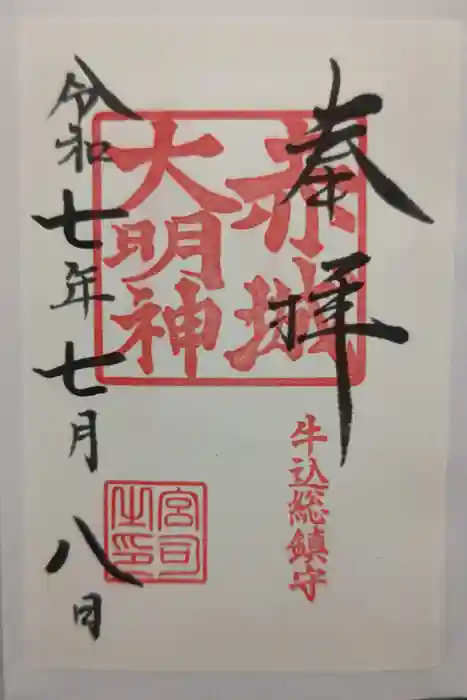 奉拝
赤城
大明神
牛込総鎮守
宮司
之印
令和七年七月八日